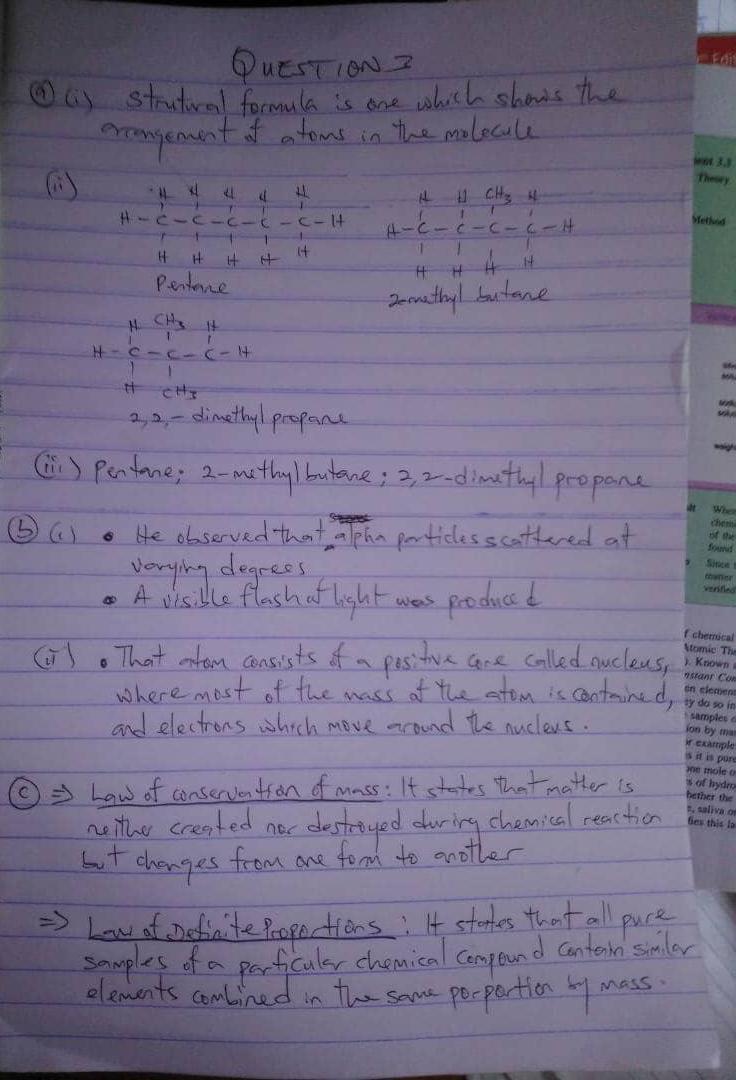 QUESTION 3
(a) (i) Strutural formula is one which shows the
arrangement of atoms in the molecule
(ii)
H H H H H
H-C-C-C-C-C-H
H H H H H
Pentane
H H CH3 H
H-C-C-C-C-H
H H H H
2-methyl butane
H CH3 H
H-C-C-C-H
H CH3
2,2,-dimethyl propane
(iii) Pentane; 2-methylbutane; 2,2-dimethyl propane
(b) (i) • He observed that alpha particles scattered at
varying degrees
• A visible flash of light was produced
(ii) • That atom consists of a positive core called nucleus,
where most of the mass of the atom is contained,
and electrons which move around the nucleus.
(c) => Law of conservation of mass: It states that matter is
neither created nor destroyed during chemical reaction
but changes from one form to another
=> Law of Definite Proportions: It states that all pure
samples of a particular chemical compound contain similar
elements combined in the same porportion by mass.
Edit
3.3
Theory
Method
When
chem
of the
found
Since
matter
verified
f chemical
Atomic The
). Known
nstant Com
en element
ey do so in
samples
ion by mas
or example
s it is pure
one mole o
s of hydro
hether the
, saliva or
fies this la